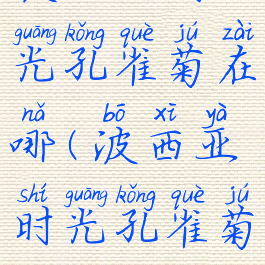 guāng kǒng què jú zài
光孔雀菊在
nǎ bō xī yà
哪(波西亚
shí guāng kǒng què jú
时光孔雀菊